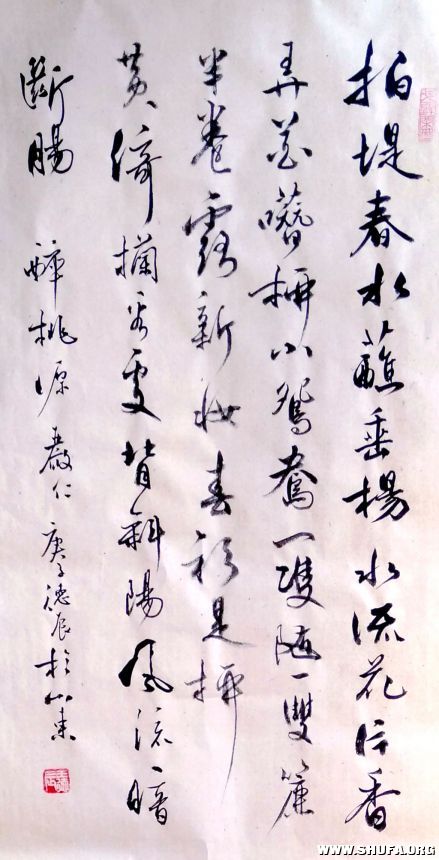 拍堤春水蘸垂楊水流花片香
弄花噆柳小鴛鴦一雙随一雙簾
半卷露新妆春衫是柳
黄倚攔看處背斜陽風流暗
斷腸 醉桃源 嚴仁 庚子德辰於山東
WWW.SHUFA.ORG